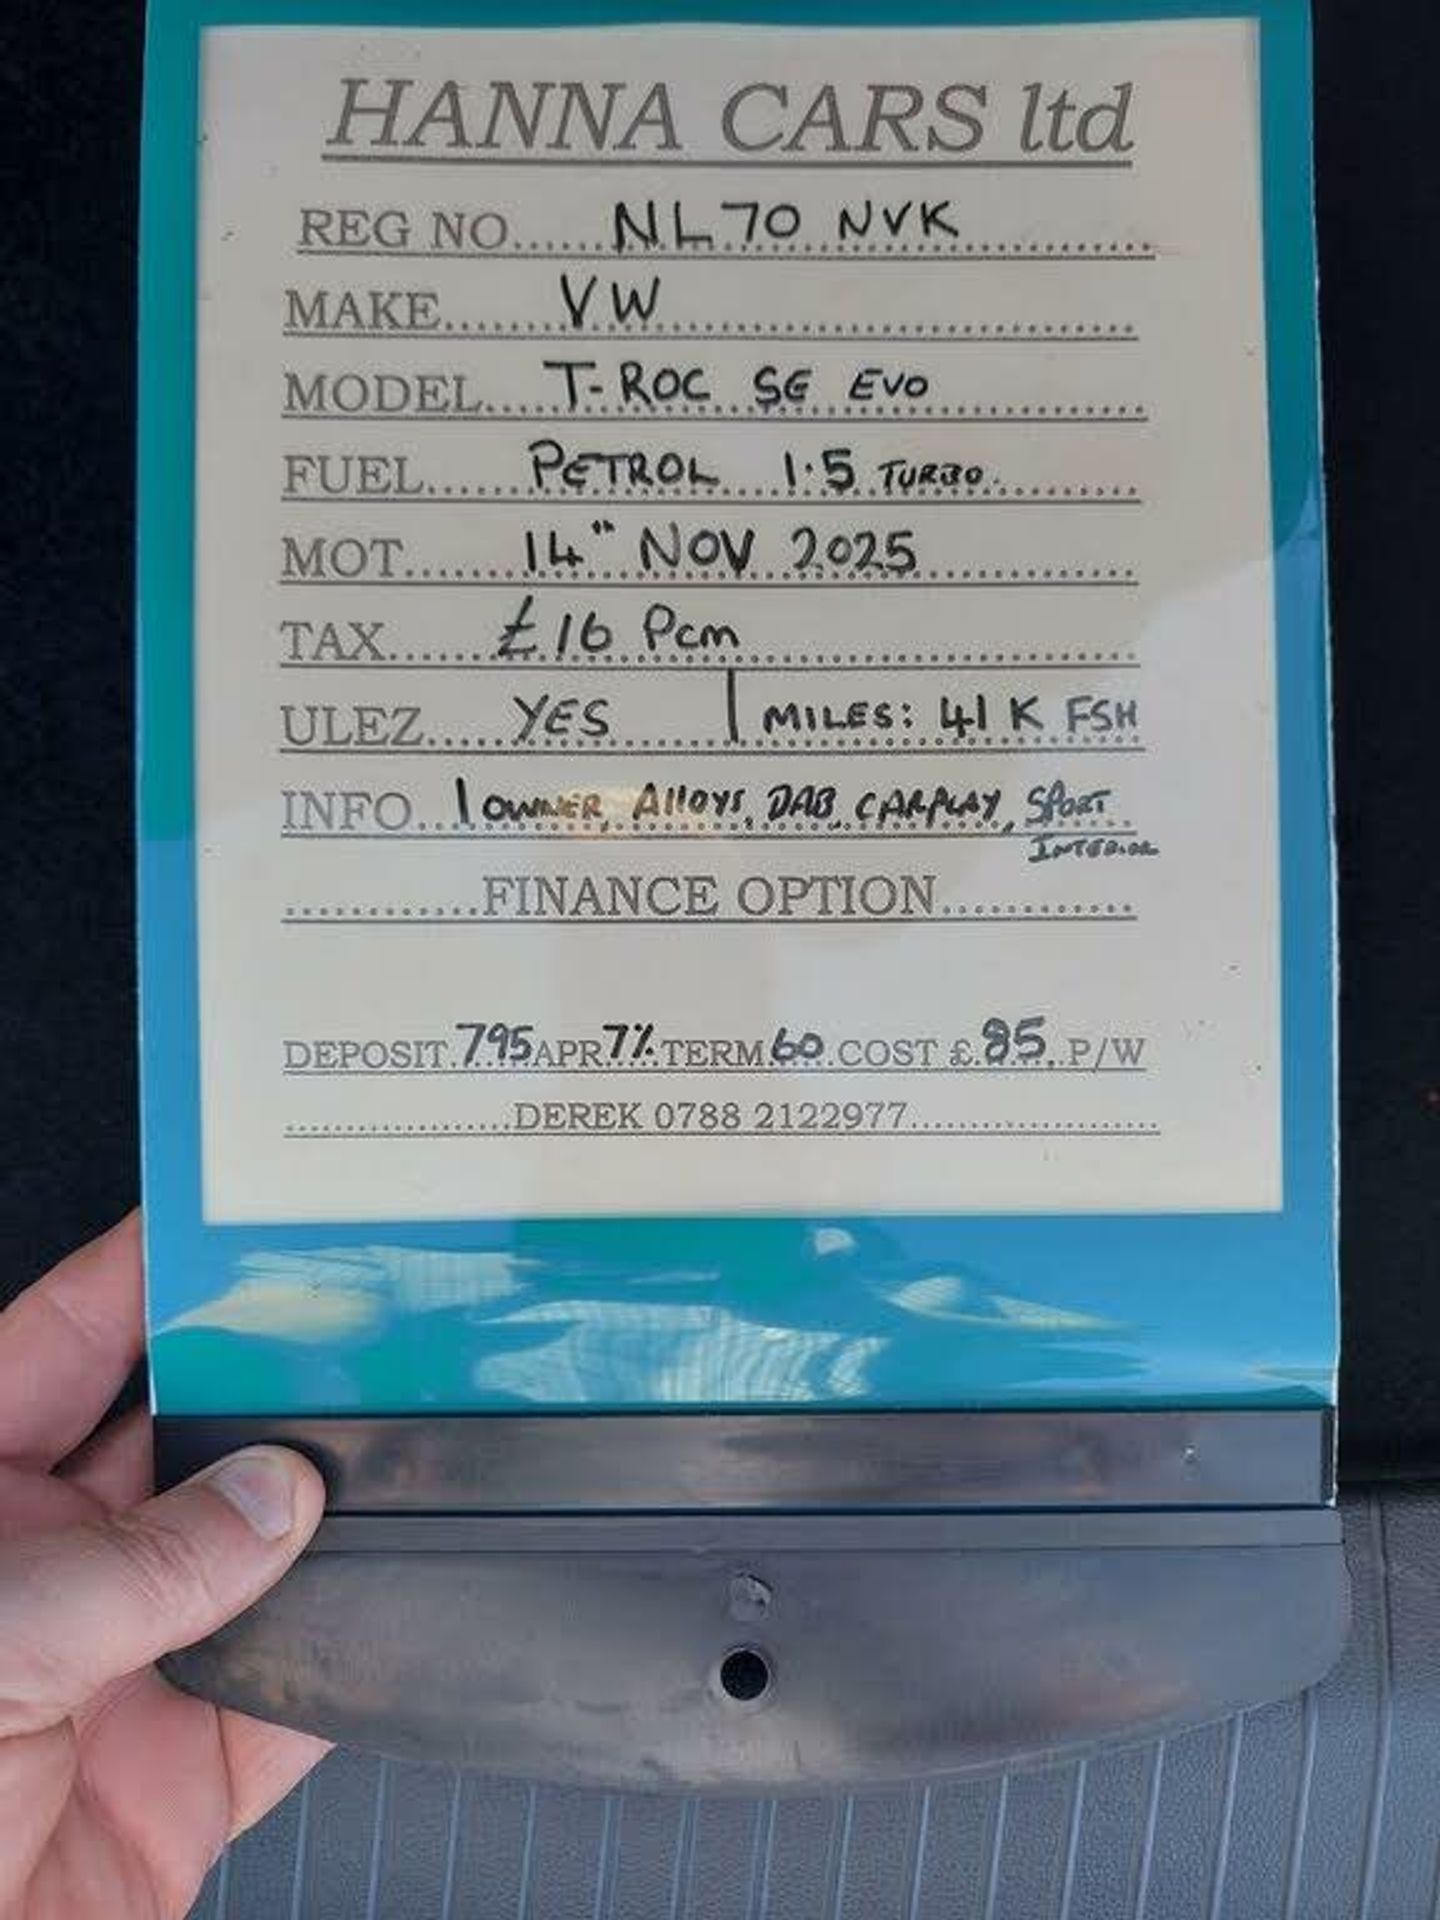 HANNA CARS ltd
REG NO......NL70 NVK
MAKE......VW
MODEL....T-ROC SE EVO
FUEL......PETROL 1.5 TURBO
MOT......14th NOV 2025
TAX......£16 Pcm
ULEZ......YES | MILES: 41K FSH
INFO...1 OWNER, Alloys, DAB, CARPLAY, SPORT
INTERIOR
............FINANCE OPTION............
DEPOSIT.795 APR 7% TERM.60..COST £.85..P/W
..................DEREK 0788 2122977....................